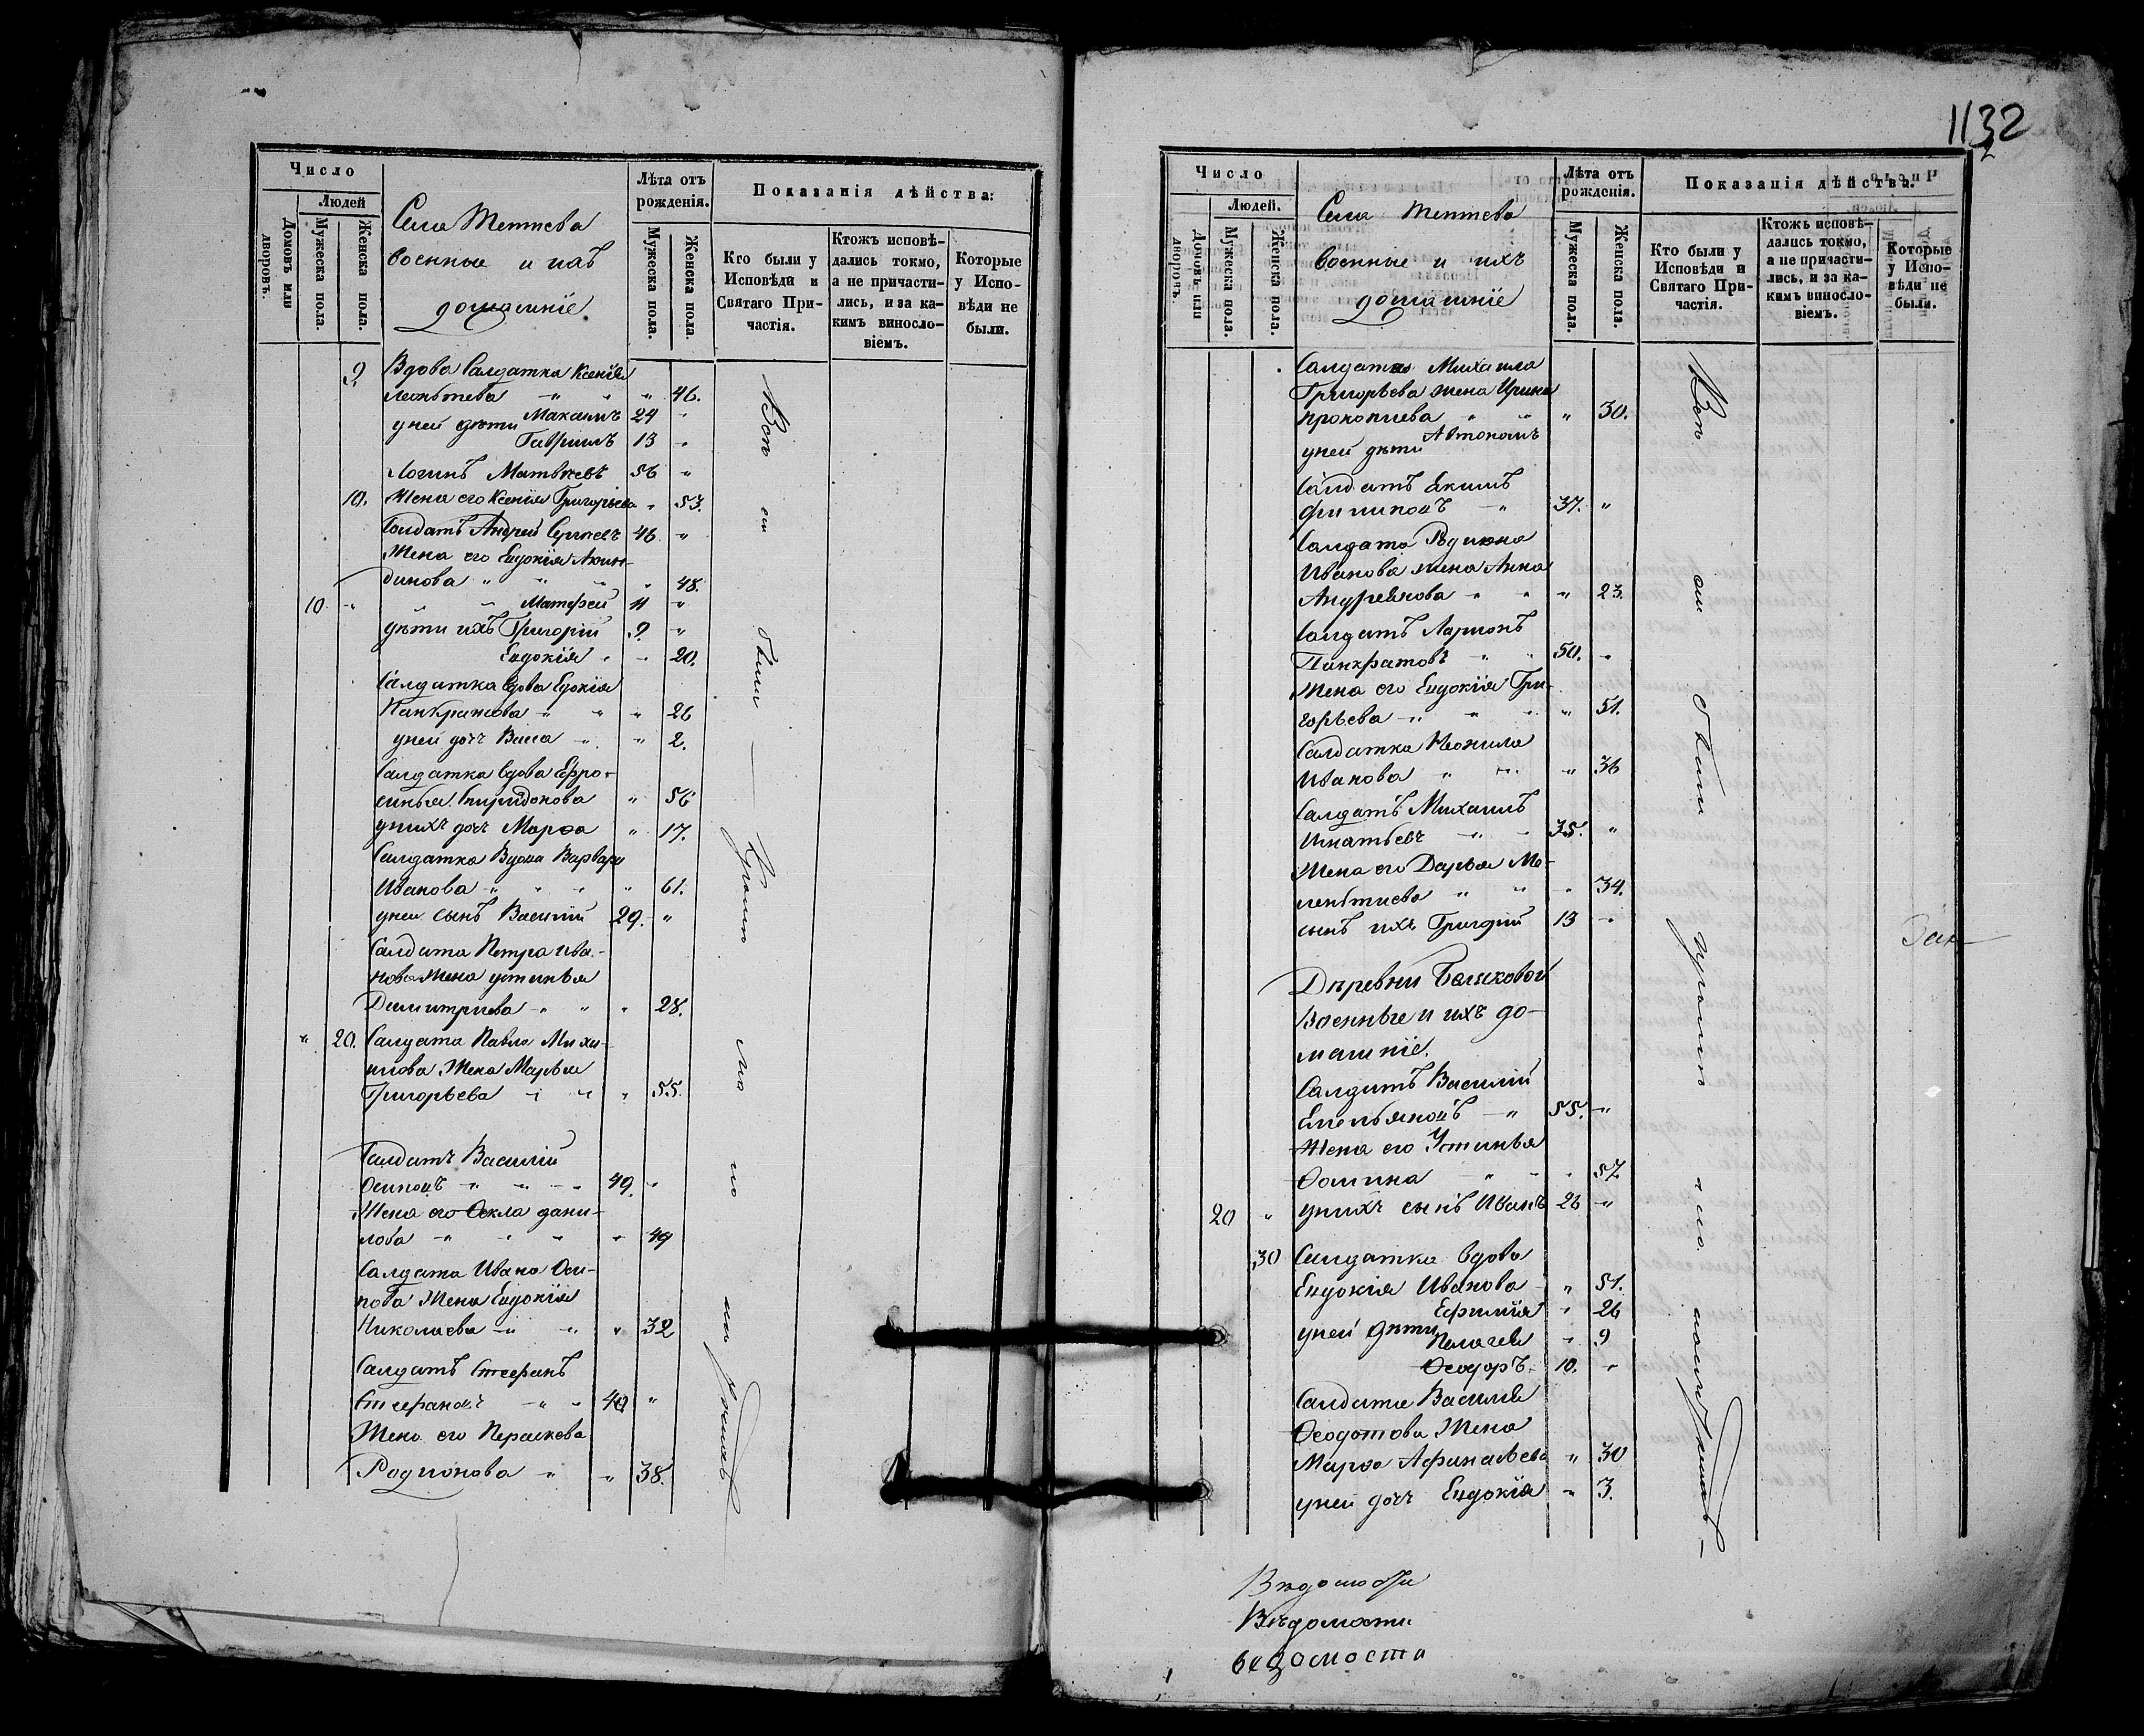 Число
Людей
Домовъ или дворовъ.
Мужеска пола.
Женска пола.
Села Тептева
военные и ихъ
домашніе.
Лѣта отъ рожденія.
Мужеска пола.
Женска пола.
Показанія дѣйства:
Кто были у Исповѣди и Святаго Причастія.
Ктожъ исповѣдались токмо, а не причастились, и за какимъ винословіемъ.
Которые у Исповѣди не были.
9 Вдова Салдатка Ксенія
Леонтьева " " " 46.
уней дѣти Максимъ 24 "
Гавріилъ 13 "
Логинъ Матвѣевъ 56 "
10. Жена его Ксенія Григорьева " 53.
Солдатъ Андрей Сергѣевъ 46 "
Жена его Евдокія Акин-
динова " " " " 48.
10 " " " Матфей 11 "
дѣти ихъ Григорій 9. "
Евдокія " " 20.
Салдатка вдова Едокія
Панкратова " " " 26
уней дочь Васса " " 2.
Салдатка вдова Ефро-
синья Спиридонова " 56
унихъ дочь Марѳа " 17.
Салдатка Вдова Варвара
Иванова " " " " 61.
уней сынъ Василій 29. "
Салдата Петра Ива-
нова жена устинья
Димитриева " " " 28.
" 20. Салдата Павла Михаи-
лова Жена Марья
Григорьева " " " 55.
Салдатъ Василій
Осиповъ " " " 49. "
Жена его Ѳекла дани-
лова " " " " 49
Салдата Ивана Оси-
пова Жена Евдокія
Николаева " " " 32
Салдатъ Стефанъ
Стефановъ " " 40 "
Жена его Параскева
Родионова " " 38.
Всѣ
были
1132
2
Число
Людей.
Домовъ или дворовъ.
Мужеска пола.
Женска пола.
Села Тептева
военные и ихъ
домашніе
Лѣта отъ рожденія.
Мужеска пола.
Женска пола.
Показанія дѣйства.
Кто были у Исповѣди и Святаго Причастія.
Ктожъ исповѣдались токмо, а не причастились, и за какимъ винословіемъ.
Которые у Исповѣди не были.
Салдата Михаила
Григорьева жена Ирина
прокопиева " " " 30.
уней дѣти Автономъ
Салдатъ Екимъ
Филиповъ " 37. "
Салдата Родиона
Иванова жена Анна
Андреянова " " " 23.
Салдатъ Ларионъ
Панкратовъ " " 50. "
Жена его Евдокія Гри-
горьева " " " " 51.
Салдатка Неонила
Иванова " " " 36
Салдатъ Михаилъ
Игнатьевъ " " 35. "
Жена его Дарья Ме-
лентиева " " " 34.
сынъ ихъ Григорій 13 "
Деревни Беляковой
Военные и ихъ до-
машніе.
Салдатъ Василій
Емельяновъ " 55. "
Жена его Устинья
Фомина " " " 57
20 " унихъ сынъ Иванъ 26 "
30 Салдатка вдова
Евдокія Иванова " " 51.
Ефимія " 26
уней дѣти Пелагея " 9
Ѳеодоръ 10. "
Салдата Василія
Ѳеодотова Жена
Марѳа Афанасьева " 30
уней дочь Евдокія " 3.
Всѣ
были
Вѣдомости
Вѣдомости
ведомости